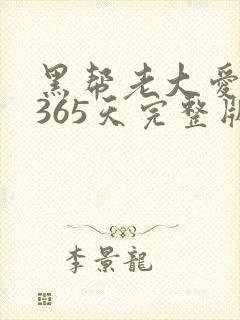 黑帮老大爱
365天完整版
李景龍